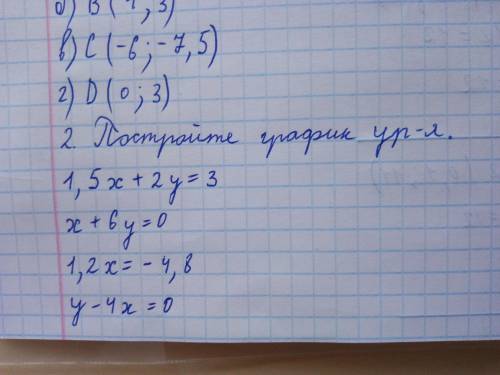 б) В (4; 3)
в) С (-6; -7,5)
г) D (0; 3)
2. Постройте график ур-я.
1,5x + 2y = 3
x + 6y = 0
1,2x = - 4,8
y - 4x = 0